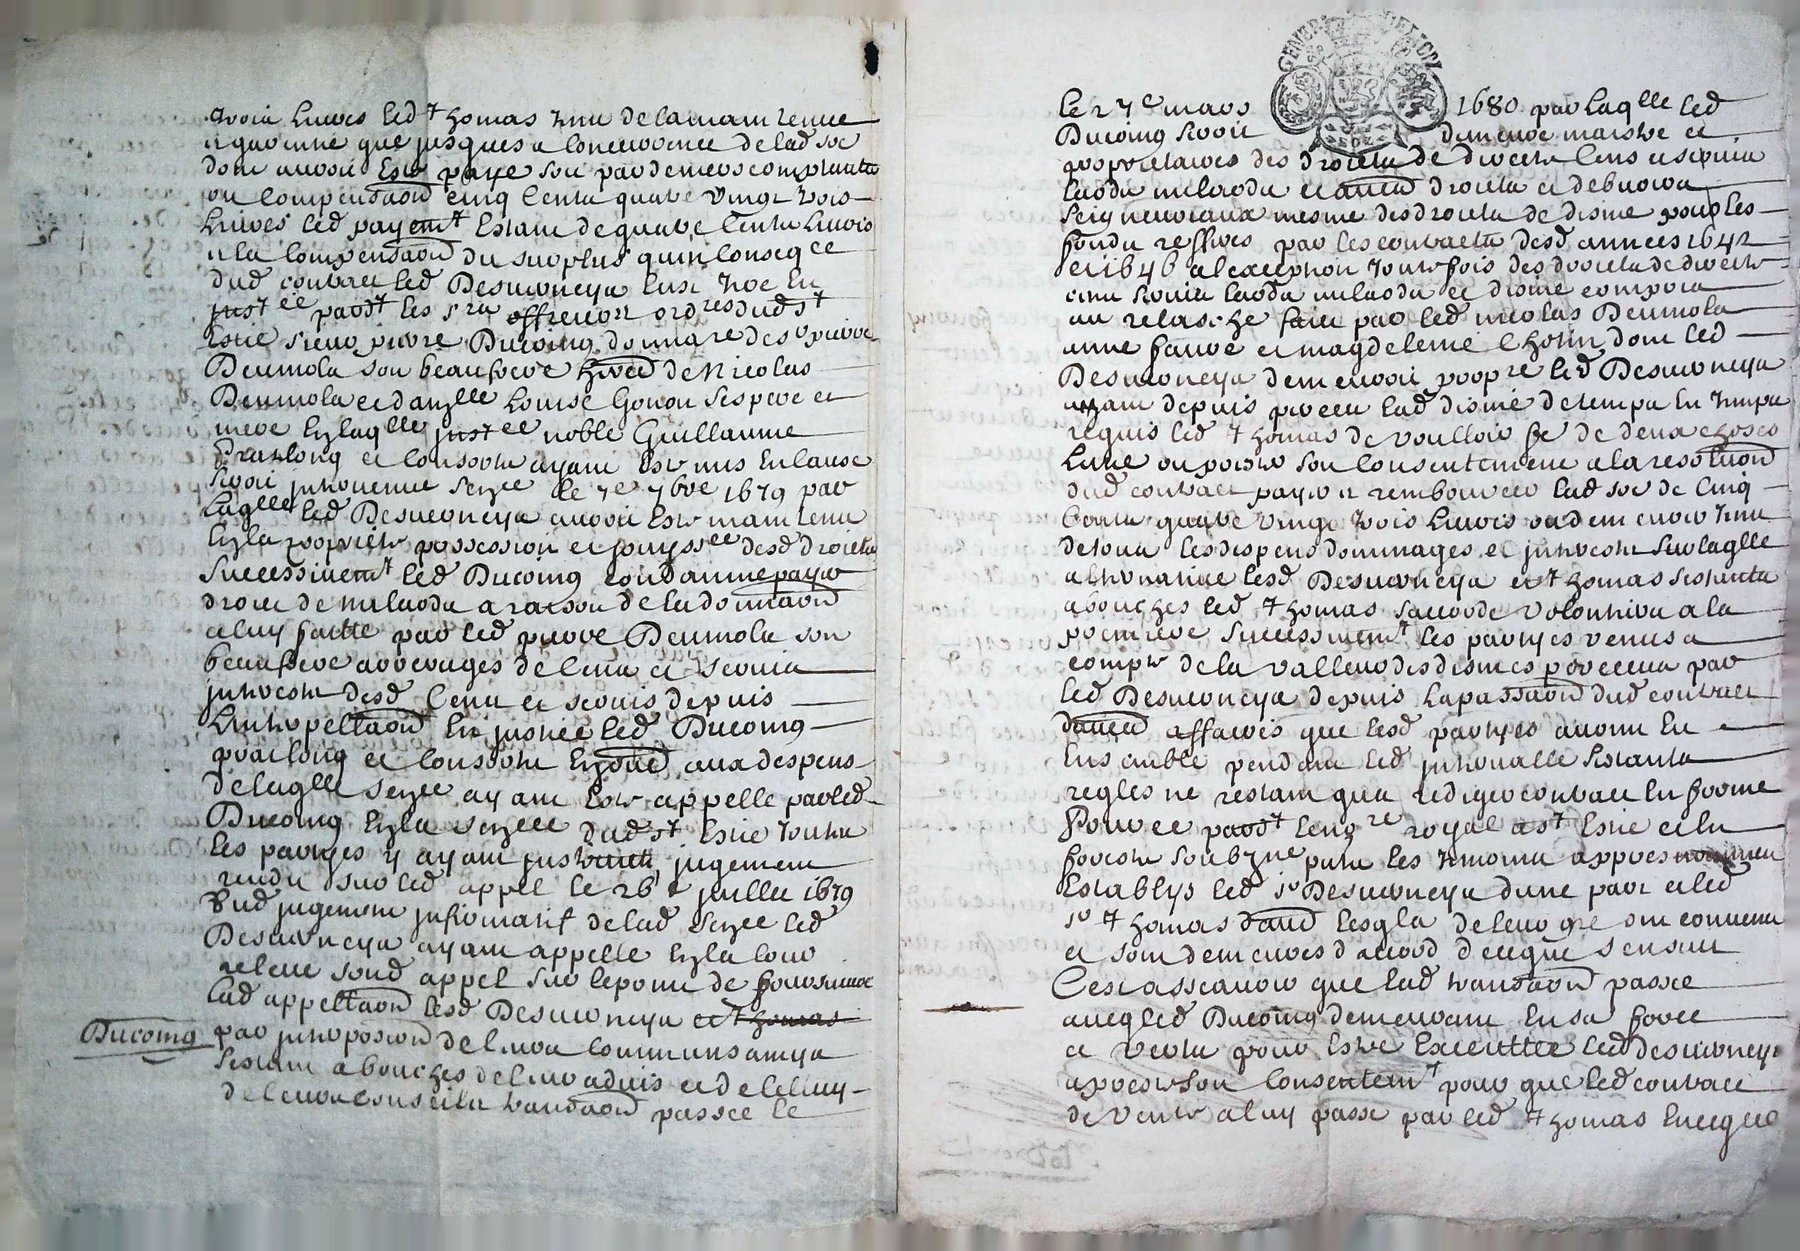 trois livres led Thomas tenu de la maintenue
et garentie que jusques a concurrence de lad so͂e
dont auroit este paye soit par deniers comptants
ou compensaon cinq cents quatre vingt trois
livres led payemt estant de quatre cents livres
et la compensaon du surplus qu'en conseqce
dud contract led Desuconeya
justce pardt les srs officiers ordres dud st
Estie sieur pierre Ducoing donnatre des pierre
Deumola son beaufrere de Nicolas
Deumola et danzlle Louise Gonon ses pere et
mere en laqlle justce noble Guillaume
Pratlong et consorts ayant este mis en cause
seroit intervenue senze le 7e 7bre 1679 par
laqlle led Desuconeya auroit este maintenu
en la propriete possession et jouissce desd droicts
successivemt led Ducoing condamne payer
droit de milaods a raison de la donnaon
a luy faitte par led pierre Deumola son
beaufrere arrerages de cens et servis
interests desd cens et servis depuis
l'interpellaon en justice led Ducoing
pratlong et consorts aux despens
de laqlle senze ayant este appelle par led
Ducoing en la senzee dud st Estie toutes
les partyes y ayant jugement
rendu sur led appel le 26e juillet 1679
Dud jugement infirmatif de lad senze led
Desuconeya ayant appelle en la cour
releve sond appel sur le point de poursuivre
lad appellaon lesd Desuconeya et Thomas
Ducoing par interposion de leurs communs amys
sestant abouches de leur advis et de celluy
de leurs conseils transaon passee le
le 27e mars 1680 par laqlle led
Ducoing seroit demeure maistre et
proprietaires des droicts de directe cens et servis
laods milaods et autres droicts et debvoirs
seigneuriaux mesme des droicts de disme pour les
fonds reffires par les contracts desd annees 1642
et 1646 a l'exception toutesfois des droicts de directe
cens servis laods milaods et disme compris
au relasche faict par led nicolas Deumola
anne faure et magdeleine Chotin dont led
Desuconeya demeuroit proprre led Desuconeya
ayant depuis perceu lad disme de temps en temps
requis led Thomas de voulloir fe de deux choses
lune ou porter son consentement a la resoluon
dud contract payer et rembourcer lad so͂e de cinq
cents quatre vingt trois livres ou demeurer tenu
de tous les despens dommages et interests sur laqlle
alternative lesd Desuconeya et Thomas sestants
abouches led Thomas sacorde volontiers a la
premiere successivemt les partyes venus a
compte de la valleur des dismes perceus par
led Desuconeya depuis la passaon dud contract
dautres affaires que lesd partyes avoint eu
ensemble pendant led intervalle sestants
regles ne restant qua rediger contract en forme
Pour ce pardt le nore royal a st Estie et en
presence les tesmoins appres nommes
Establys led sr Desuconeya dune part et led
sr Thomas dautre lesqls de leur gre ont convenu
et sont demeures dacord de ce que sensuit
Cest asscavoir que lad transaon passee
avecq led Ducoing demeurant en sa force
et vertu pour estre executtee led desuconeya
apreste son consentemt pour que led contract
de vente a luy passe par led Thomas